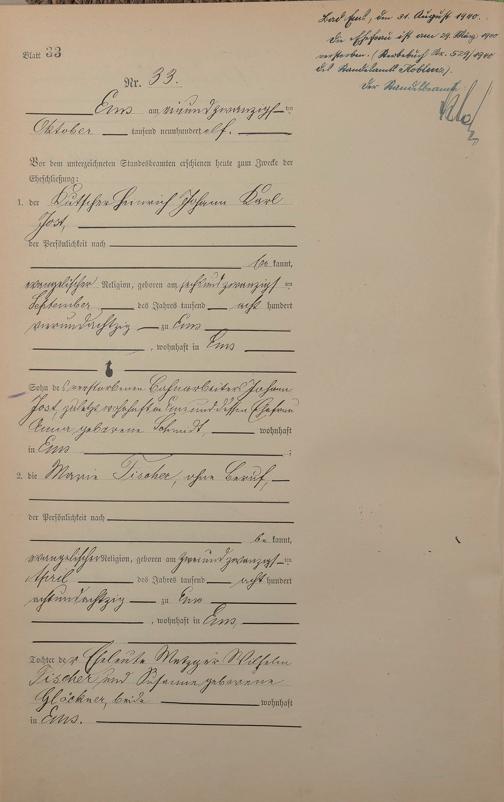 Bad Ems, den 31. August 1940.
Die Ehefrau ist am 29. März 1940
verstorben. (Sterbebuch Nr. 529/1940
des Standesamts Koblenz).
Der Standesbeamte
Blatt 33
Nr. 33.
Ems am vierundzwanzigsten
Oktober tausend neunhundert elf.
Vor dem unterzeichneten Standesbeamten erschienen heute zum Zwecke der
Eheschließung:
1. der Kutscher Heinrich Johann Karl
Jost,
der Persönlichkeit nach
be kannt,
evangelischer Religion, geboren am sechsundzwanzigsten
September des Jahres tausend acht hundert
vierundachtzig zu Ems
, wohnhaft in Ems
Sohn des verstorbenen Bahnarbeiters Johann
Jost, zuletzt wohnhaft in Ems und dessen Ehefrau
Anna geborene Schmidt, wohnhaft
in Ems ;
2. die Marie Fischer, ohne Beruf,
der Persönlichkeit nach
be kannt,
evangelischer Religion, geboren am zweiundzwanzigsten
April des Jahres tausend acht hundert
achtundachtzig zu Ems
, wohnhaft in Ems,
Tochter der Eheleute Metzger Wilhelm
Fischer und Susanne geborene
Glöckner, beide wohnhaft
in Ems.